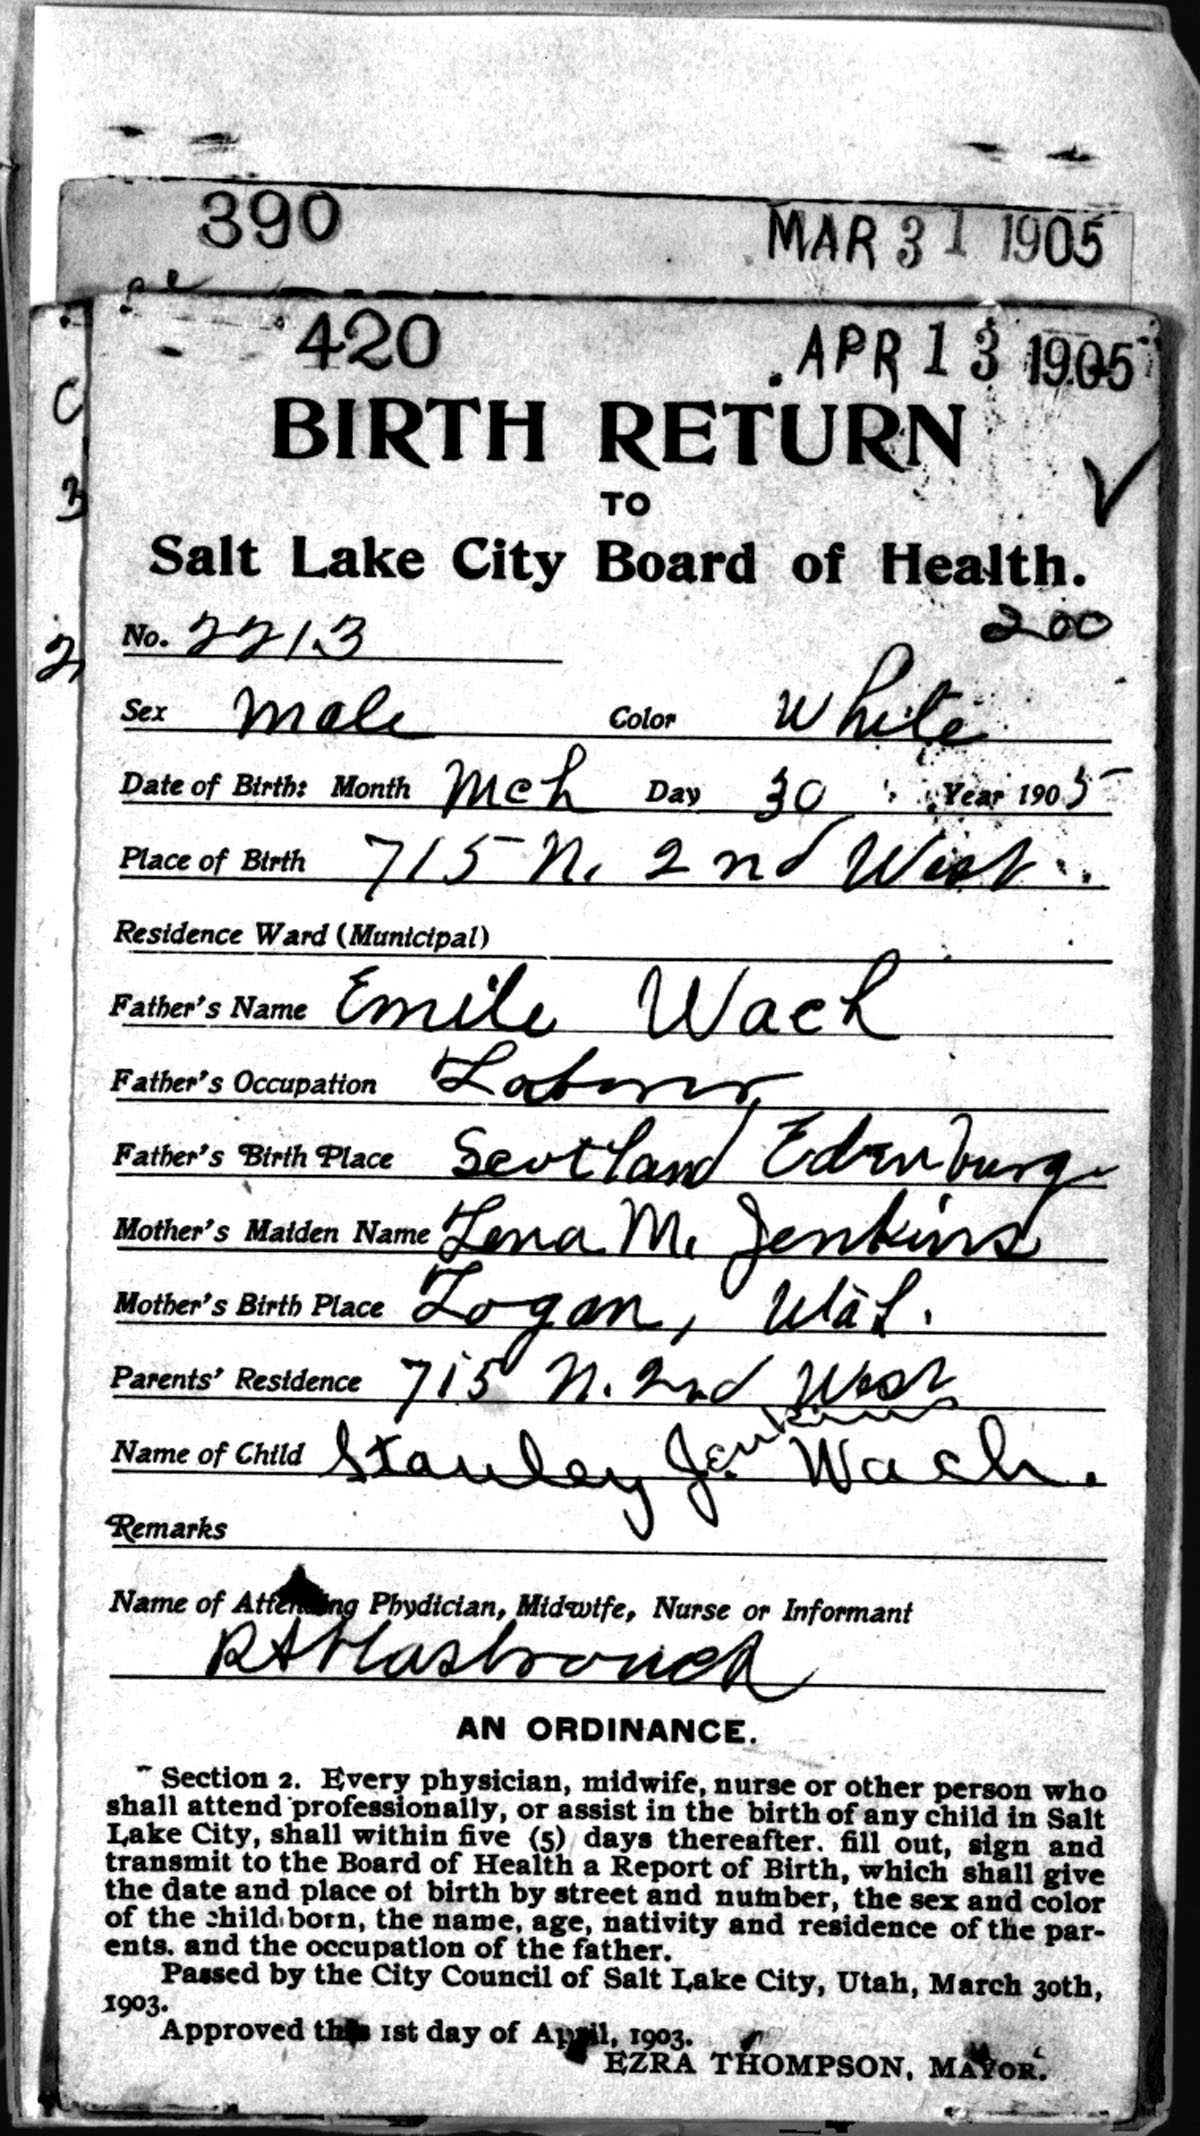 390 MAR 31 1905
420 APR 13 1905
BIRTH RETURN
TO
Salt Lake City Board of Health.
200
No. 2213
Sex Male Color White
Date of Birth: Month Mch Day 30 Year 1905
Place of Birth 715 N. 2nd West
Residence Ward (Municipal)
Father's Name Emile Wach
Father's Occupation Laborer
Father's Birth Place Scotland Edenburg
Mother's Maiden Name Lena M. Jenkins
Mother's Birth Place Logan, Utah.
Parents' Residence 715 N. 2nd West
Name of Child Stanley Jenkins Wach.
Remarks
Name of Attending Phydician, Midwife, Nurse or Informant
R A Hasbrouck
AN ORDINANCE.
Section 2. Every physician, midwife, nurse or other person who
shall attend professionally, or assist in the birth of any child in Salt
Lake City, shall within five (5) days thereafter. fill out, sign and
transmit to the Board of Health a Report of Birth, which shall give
the date and place of birth by street and number, the sex and color
of the child born, the name, age, nativity and residence of the par-
ents. and the occupation of the father.
Passed by the City Council of Salt Lake City, Utah, March 30th,
1903.
Approved this 1st day of April, 1903.
EZRA THOMPSON, MAYOR.
C
3
2